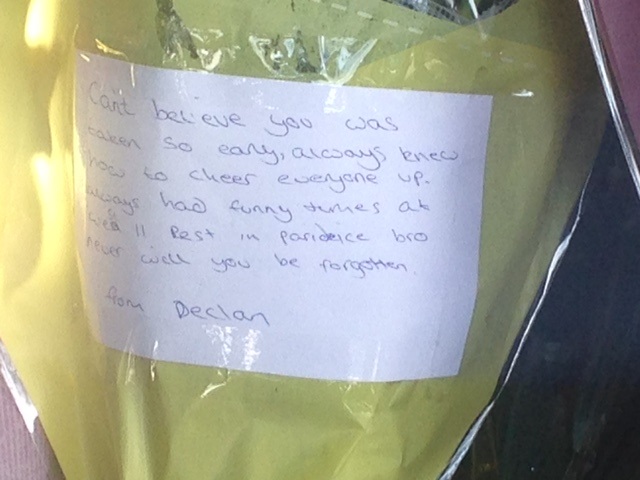 Can't believe you was
taken so early, always knew
how to cheer everyone up.
always had funny times at
Rest in parideice bro
never will you be forgotten.
from Declan